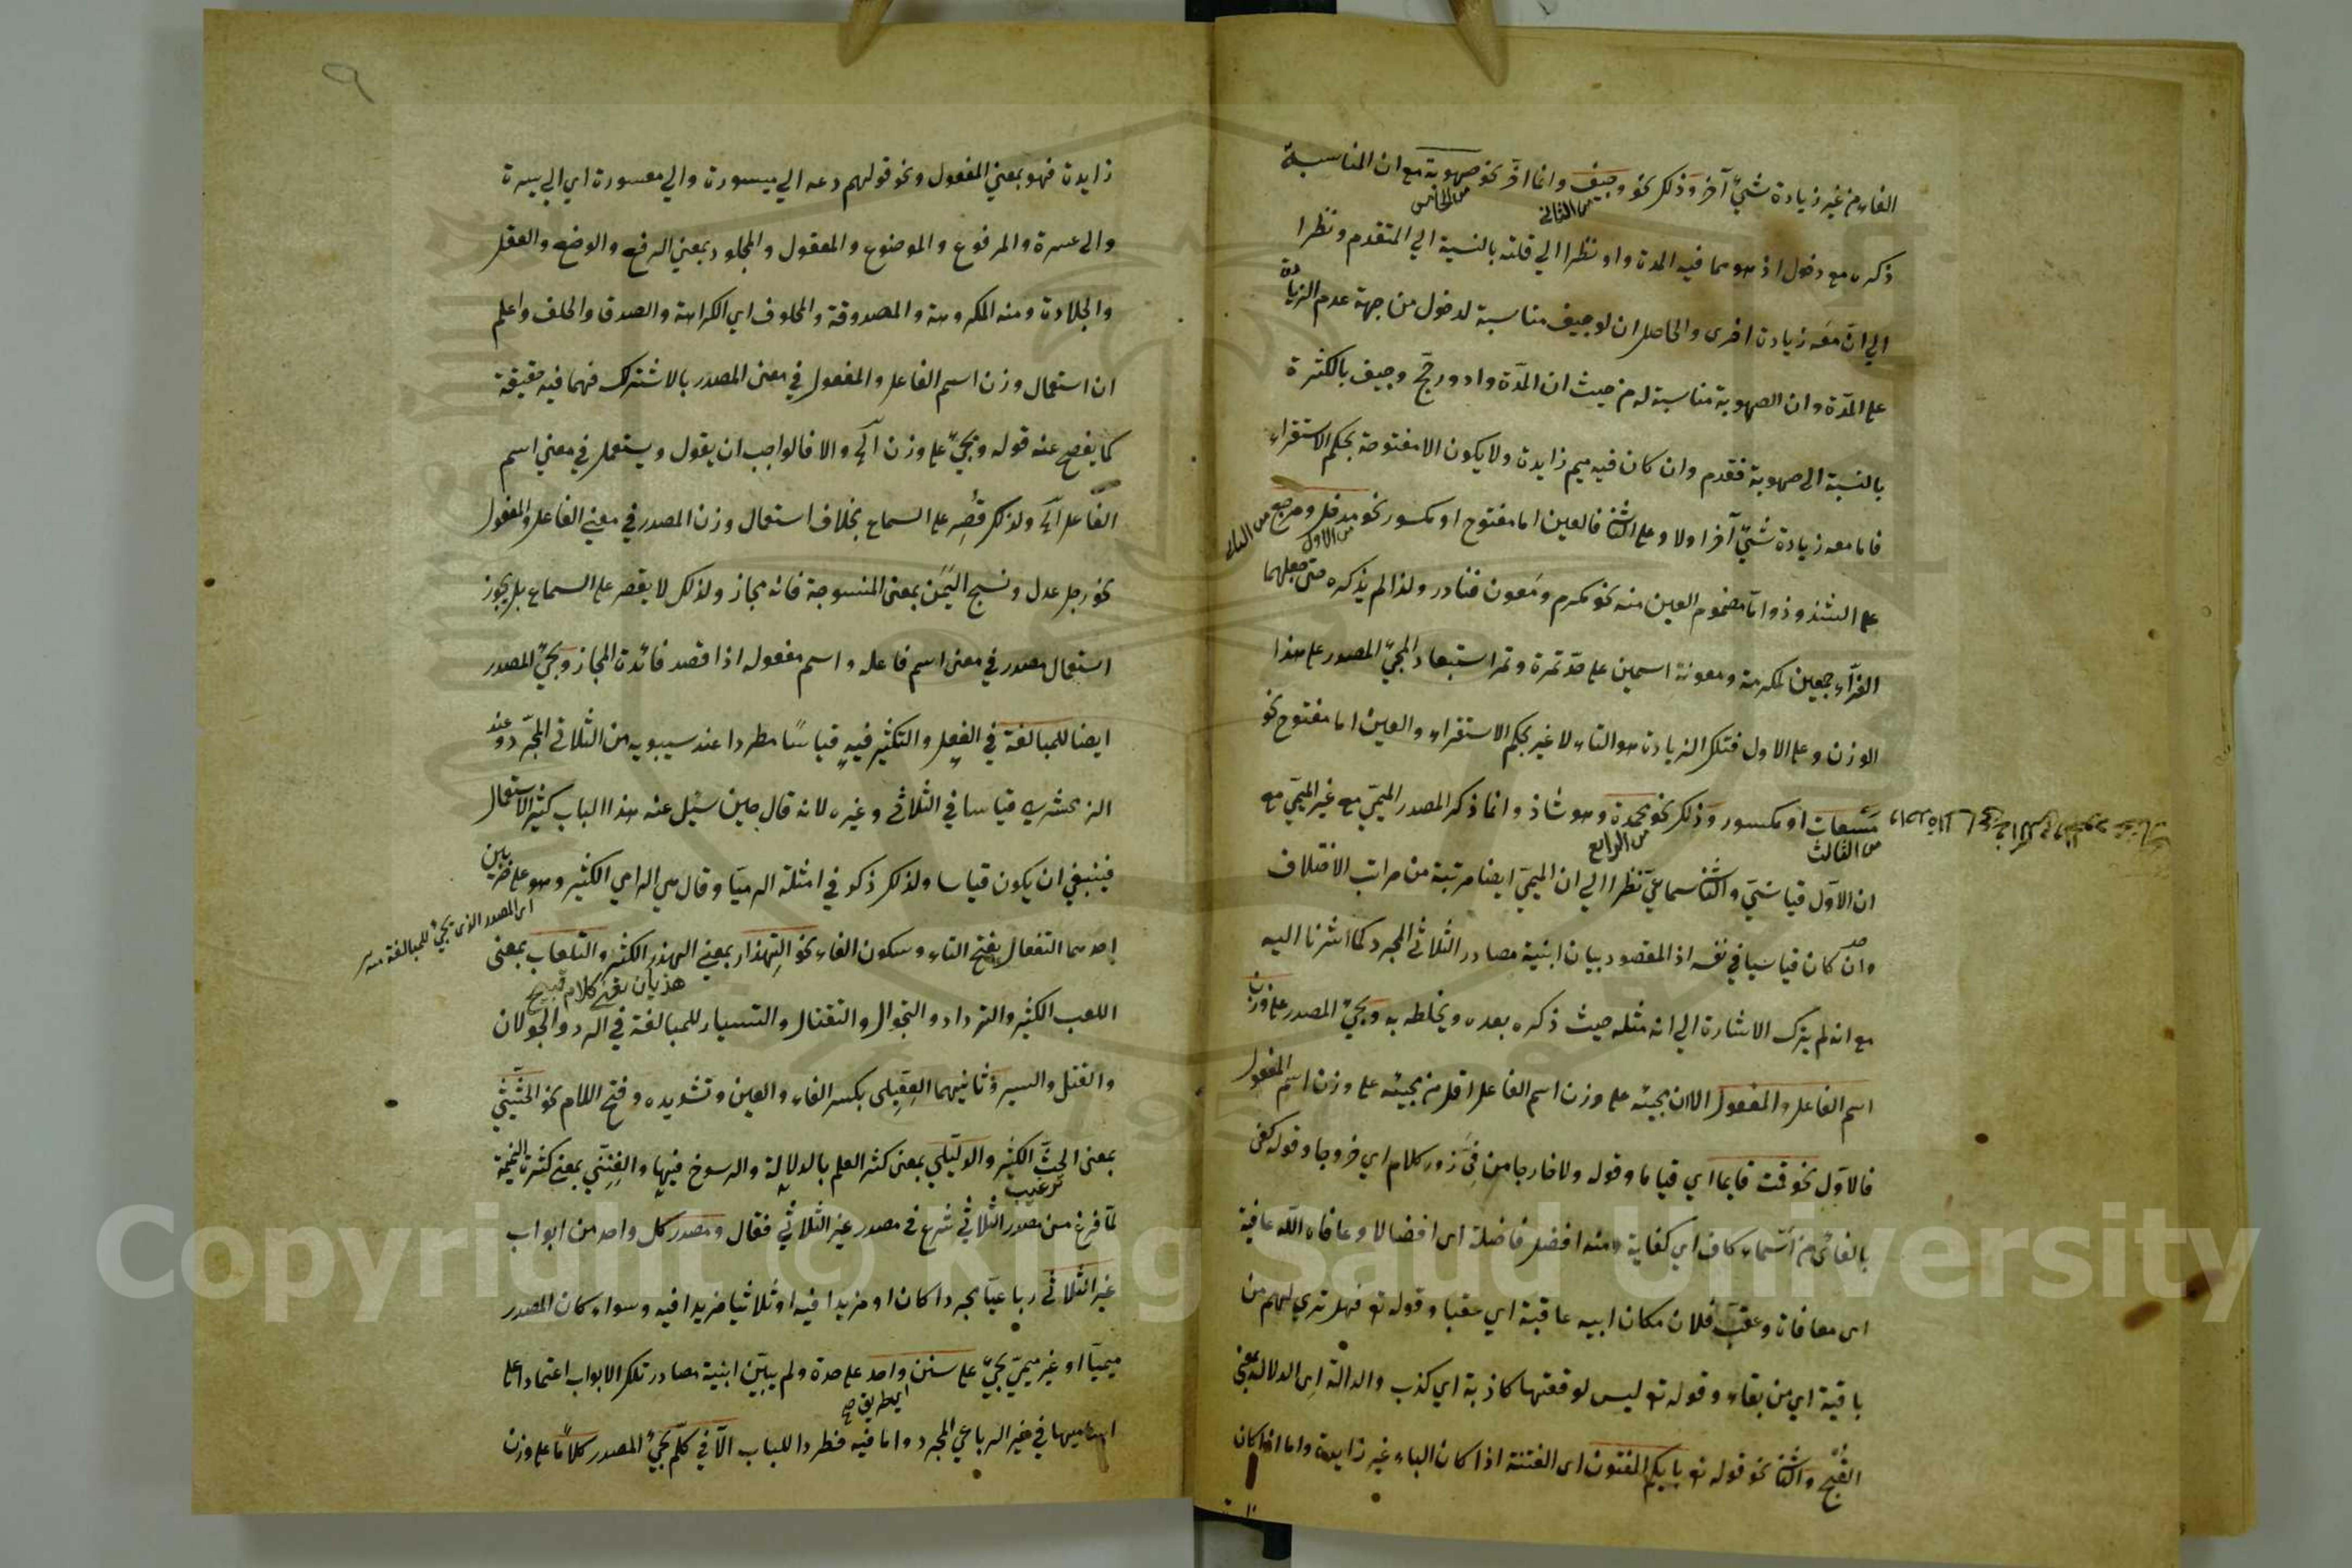 الفاء من غير زيادة شئ آخر وذلك نحو وجيف وانما اخر نحو صهوبة مع ان المناسبة
من الثاني
من الخامس
ذكره مع دخول اذ هو مما فيه المدة واو نظرا الي قلته بالنسبة الي المتقدم ونظرا
الي ان معه زيادة اخرى والحاصل ان لوجيف مناسبة لدخول من جهة عدم الزيادة
على المدّة وان الصهوبة مناسبة له من حيث ان المدّة واو ورجّح وجيف بالكثرة
بالنسبة الى صهوبة فقدم وان كان فيه ميم زايدة ولا يكون الا مفتوحة بحكم الاستقراء
فاما معه زيادة شئ آخر او لا وعلى الثانى فالعين اما مفتوح او مكسور نحو مدخل ومرجع
من الاول
من الثاني
على الشذوذ واما مضموم العين منه نحو مكرم ومعون فنادر ولذا لم يذكره حتى جعلهما
الفرّاء جمعين لمكرمة ومعونة اسمين على حدّ تمرة وتمر استبعاد المجئ المصدر على هذا
الوزن وعلى الاول فتلك الزيادة هو التاء لا غير بحكم الاستقراء والعين اما مفتوح نحو
مسعاة او مكسور وذلك نحو محمدة وهو شاذ وانما ذكر المصدر الميمىّ مع غير الميمىّ مع
من الثالث
من الرابع
ان الاوّل قياسىّ والثانى سماعىّ نظرا الي ان الميمىّ ايضا مرتبة من مراتب الاختلاف
وان كان قياسيا في نفسه اذ المقصود بيان ابنية مصادر الثلاثي المجرد كما اشرنا اليه
مع انه لم يترك الاشارة الي انه مثله حيث ذكره بعده ويخلطه به ويجئ المصدر على وزن
اسم الفاعل والمفعول الا ان مجيئه على وزن اسم الفاعل اقل من مجيئه على وزن اسم المفعول
فالاوّل نحو قمت قايما اي قياما وقوله ولا خارجا من فىّ زور كلام اي خروجا وقوله كفى
بالنائ من اسماء كاف اي كفاية ومنه افضل فاضلة اى افضالا وعافاه الله عافية
اى معافاة وعقب فلان مكان ابيه عاقبة اي عقبا وقوله تع فهل تري لهم من
باقية اي من بقاء وقوله تع ليس لوقعتها كاذبة اي كذب والدالة اى الدلال بمعنى
الغنج والثانى نحو قوله تع بايكم المفتون اى الفتنة اذا كان الباء غير زايدة واما اذا كان
٩
زايدة فهو بمعني المفعول ونحو قولهم دعه الي ميسورة والي معسورة اي الي يسرة
والى عسرة والمرفوع والموضوع والمعقول والمجلود بمعني الرفع والوضع والعقل
والجلادة ومنه المكروهة والمصدوقة والمحلوف اي الكراهة والصدق والحلف واعلم
ان استعمال وزن اسم الفاعل والمفعول في معنى المصدر بالاشتراك فهما فيه حقيقة
كما يفصح عنه قوله ويجئ على وزن آلخ والا فالواجب ان يقول ويستعمل في معني اسم
الفاعل آلخ ولذلك قُصِر على السماع بخلاف استعمال وزن المصدر في معني الفاعل والمفعول
نحو رجل عدل ونسج اليمن بمعنى المنسوجة فانه مجاز ولذلك لا يقصر على السماع بل يجوز
استعمال مصدر في معنى اسم فاعله واسم مفعوله اذا قصد فائدة المجاز ويجئ المصدر
ايضا للمبالغة في الفعل والتكثير فيه قياسًا مطردا عند سيبويه من الثلاثي المجرّد وعند
الزمخشري قياسا في الثلاثي وغيره لانه قال حين سئل عنه هذا الباب كثير الاستعمال
فينبغي ان يكون قياسا ولذلك ذكر في امثلة الرميّا وقال هي الرامي الكثير وهو على ضربين
اى المصدر الذى يجئ للمبالغة منه
احدهما التفعال بفتح التاء وسكون الفاء نحو التهذار بمعني الهذر الكثير والتلعاب بمعنى
هذيان يعني كلام قبيح
اللعب الكثير والترداد والتجوال والتقتال والتسيار للمبالغة في الرد والجولان
والقتل والسير وثانيهما الفِعِّيلى بكسر الفاء والعين وتشديده وفتح اللام نحو الحثّيثى
بمعنى الحثّ الكثير والدليّلي بمعنى كثر العلم بالدلالة والرسوخ فيها والفتنّي بمعنى كثرة النميمة
ترغيب
لمّا فرغ من مصدر الثلاثي شرع في مصدر غير الثلاثي فقال ومصدر كل واحد من ابواب
غير الثلاثي رباعيّا مجردا كان او مزيدا فيه او ثلاثيا مزيدا فيه وسواء كان المصدر
ميميّا او غير ميمىّ يجئ على سنن واحد على حدة ولم يبيّن ابنية مصادر تلك الابواب اعتمادا على
اى طريق صح
اساميها في غير الرباعي المجرد واما فيه فطردا للباب الّا في كلّم يجئ المصدر كلّامًا على وزن